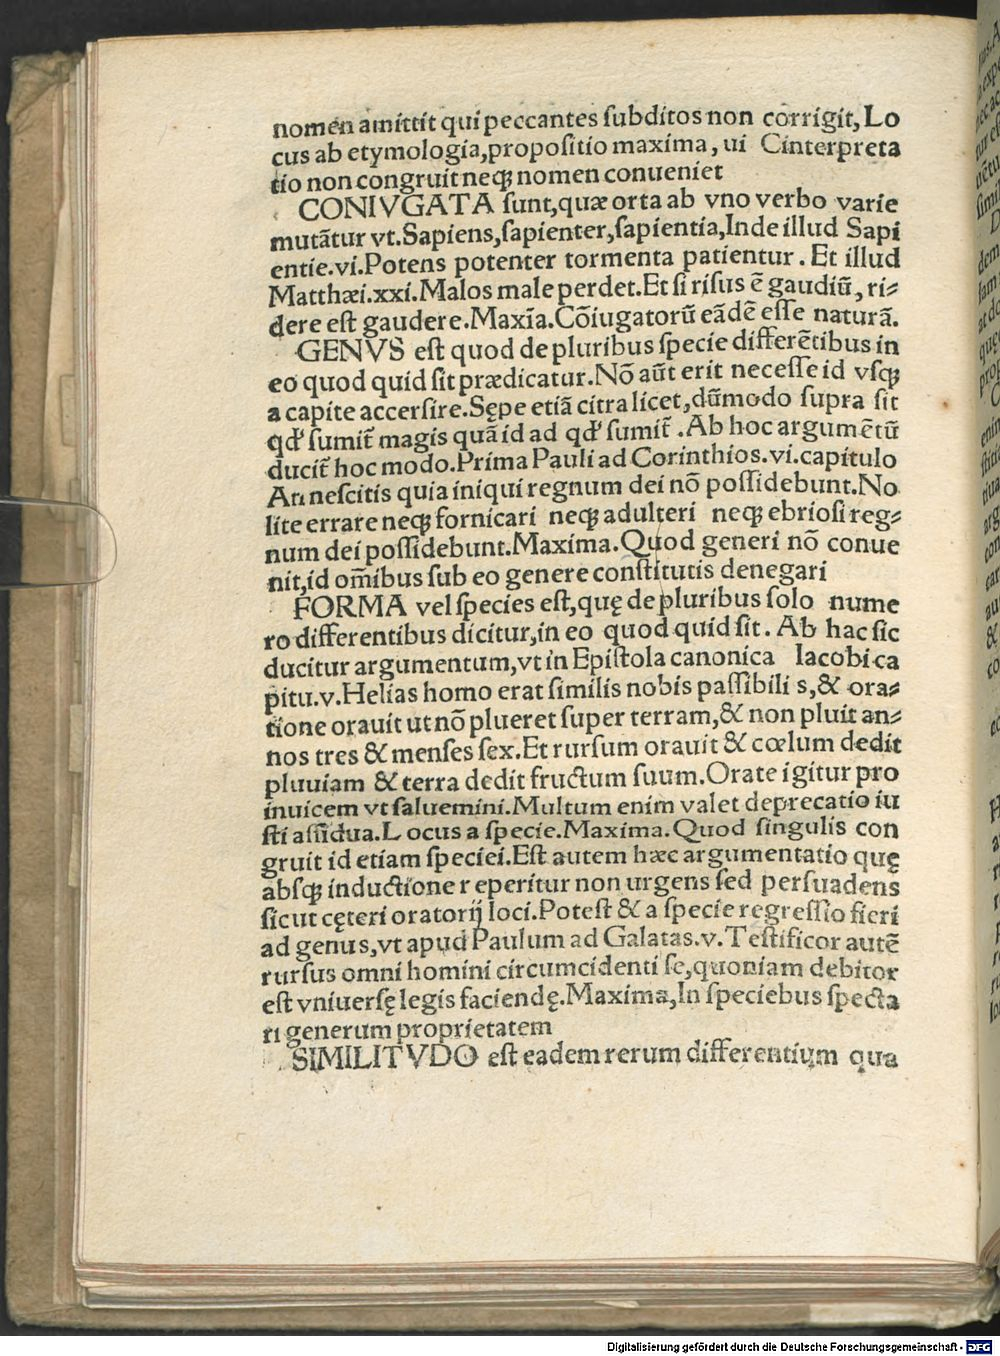 nomen amittit qui peccantes ſubditos non corrigit, Lo
cus ab etymologia,propoſitio maxima, ui Cinterpreta
tio non congruit neqꝫ nomen conueniet
CONIVGATA ſunt,quæ orta ab vno verbo varie
mutãtur vt.Sapiens,ſapienter,ſapientia,Inde illud Sapi
entie.vi.Potens potenter tormenta patientur. Et illud
Matthæi.xxi.Malos male perdet.Et ſi riſus ẽ gaudiũ, ri⸗
dere eſt gaudere.Maxĩa.Cõiugatorũ eãdẽ eſſe naturã.
GENVS eſt quod de pluribus ſpecie differẽtibus in
eo quod quid ſit prædicatur.Nõ aũt erit neceſſe id vſqꝫ
a capite accerſire.Sępe etiã citra licet,dũmodo ſupra ſit
qd' ſumit̃ magis quã id ad qd' ſumit̃ .Ab hoc argumẽtũ
ducit̃ hoc modo.Prima Pauli ad Corinthios.vi.capitulo
An neſcitis quia iniqui regnum dei nõ poſſidebunt.No
lite errare neqꝫ fornicari neqꝫ adulteri neqꝫ ebrioſi reg⸗
num dei poſſidebunt.Maxima.Quod generi nõ conue
nit,id om̃ibus ſub eo genere conſtitutis denegari
FORMA vel ſpecies eſt,quę de pluribus ſolo nume
ro differentibus dicitur,in eo quod quid ſit. Ab hac ſic
ducitur argumentum,vt in Epiſtola canonica Iacobi ca
pitu.v.Helias homo erat ſimilis nobis paſſibili s,& ora⸗
tione orauit ut nõ plueret ſuper terram,& non pluit an⸗
nos tres & menſes ſex.Et rurſum orauit & cœlum dedit
pluuiam & terra dedit fructum ſuum.Orate igitur pro
inuicem vt ſaluemini.Multum enim valet deprecatio iu
ſti aſſidua.L ocus a ſpecie.Maxima.Quod ſingulis con
gruit id etiam ſpeciei.Eſt autem hæc argumentatio quę
abſqꝫ inductione r eperitur non urgens ſed perſuadens
ſicut cęteri oratorij loci.Poteſt & a ſpecie regreſſio fieri
ad genus,vt apud Paulum ad Galatas.v.Teſtificor autẽ
rurſus omni homini circumcidenti ſe,quoniam debitor
eſt vniuerſę legis faciendę.Maxima,In ſpeciebus ſpecta
ri generum proprietatem
SIMILITVDO eſt eadem rerum differentium qua
Digitalisierung gefördert durch die Deutsche Forschungsgemeinschaft - DFG